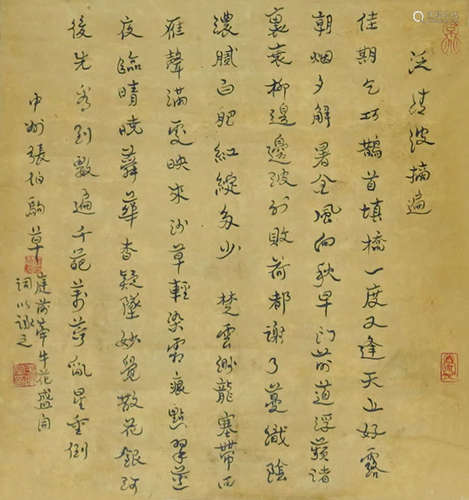 泛清波摘遍
佳期乞巧鵲首填橋一度又逢天上好露
朝烟夕解暑金風向秋早門前道浮蘋渚
裏衰柳邊邊陂外敗荷都謝了蔓織陰
濃膩白肥紅綻多少 楚雲緲龍塞帶西
雁聲滿更映來沙草輕染霜痕點翠蓬
夜臨晴曉舜華杳疑墜妙覺散花銀河
後先看到數遍千葩萬萼亂星垂倒
庭前牽牛花盛開
詞以詠之
中州張伯駒草